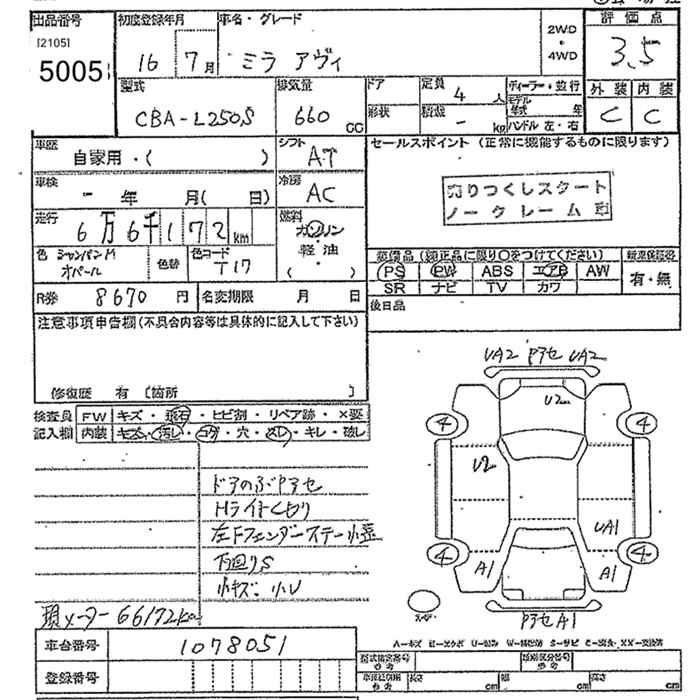 出品番号 初度登録年月 車名・グレード 2WD・4WD 評価点
[2105] 5005 16 7月 ミラ アヴィ 3.5
型式 排気量 ドア 定員 ディーラー・並行 外装 内装
CBA-L250S 660 CC 形状 4人 モデル年式 年 C C
積載 - kg ハンドル 左・右
車歴 自家用・( ) シフト AT セールスポイント (正常に機能するものに限ります)
車検 - 年 月( 日) 冷房 AC
売りつくしスタート
ノークレーム
走行 6万6千172km 燃料 ガソリン・軽油・( )
色 シャンパンM オパール 色替 色コード T17
装備品 (純正品に限り○をつけてください) 新車保証書
PS PW ABS エアB AW 有・無
SR ナビ TV カワ
R券 8670円 名変期限 月 日 後日品
注意事項申告欄(不具合内容等は具体的に記入して下さい)
修復歴 有 [箇所 ]
検査員 FW キズ・飛石・ヒビ割・リペア跡・×要
記入欄 内装 キズ・汚レ・コゲ・穴・スレ・キレ・破レ
UA2 Pアセ UA2
U2
4 4
U2
ドアのぶPアセ
Hライトくもり
左Fフェンダーステー小歪
UA1
下回りS
4 4
A1 A1
小キズ・小U
現メーター66172km
Pアセ A1
A-キズ E-エクボ U-凹ミ W-補修跡 S-サビ C-腐食 XX-交換済
車台番号 1078051
型式指定番号 類別区分番号
登録番号
cm 幅 cm 高さ cm